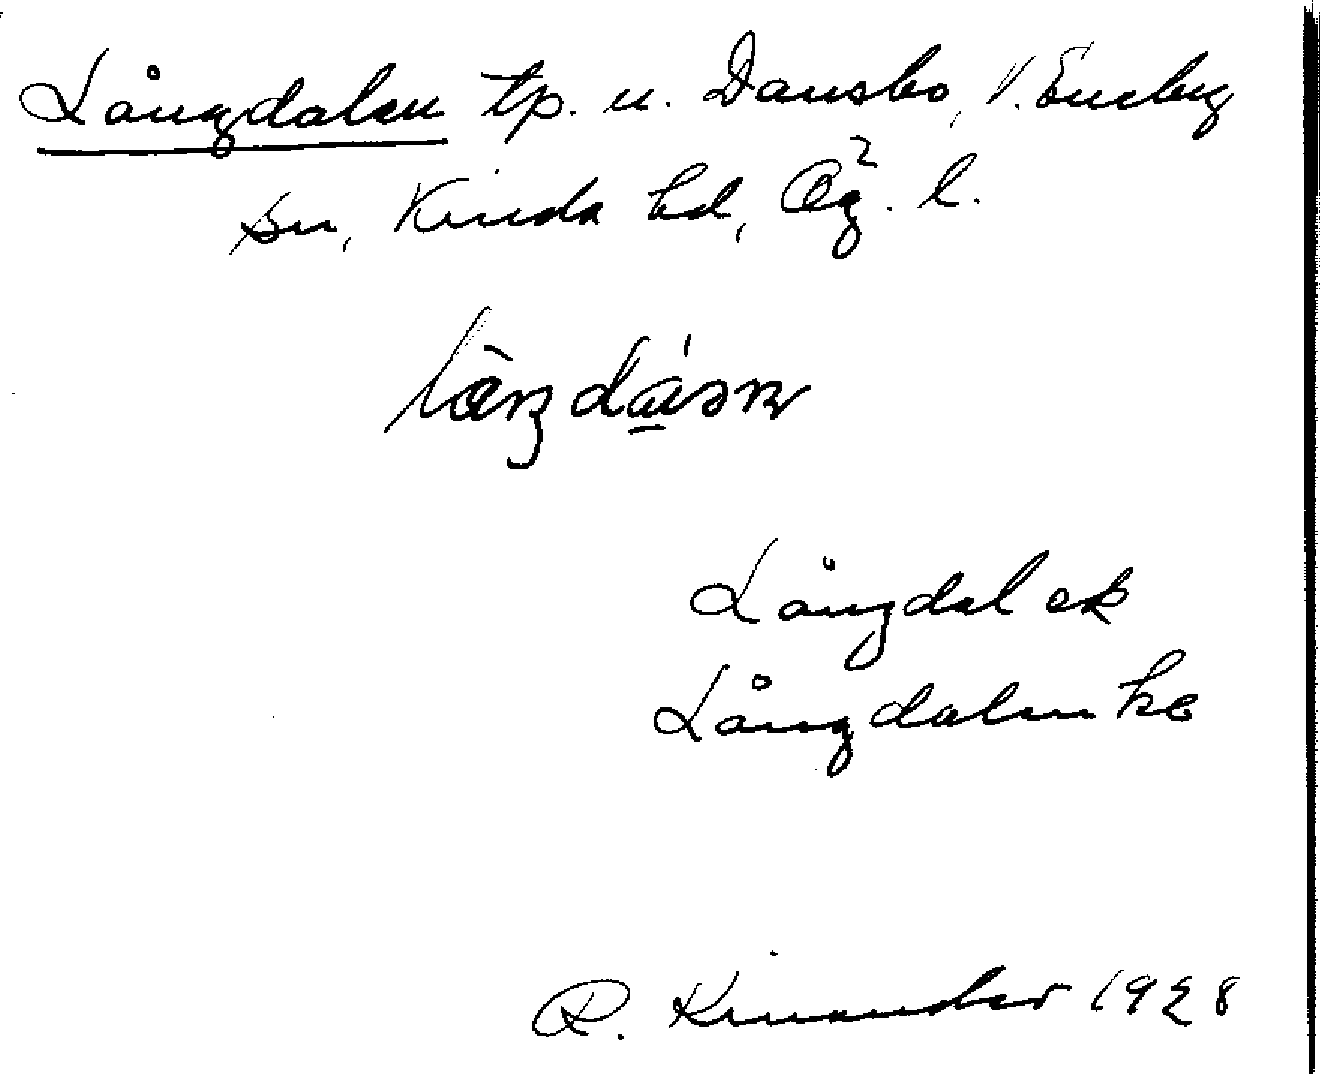 Långdalen tp. u. Dansbo, V. Eneby
sn, Kinda hd, Ög. l.
Långdal ek
Långdalen ke
R. Kinander 1928